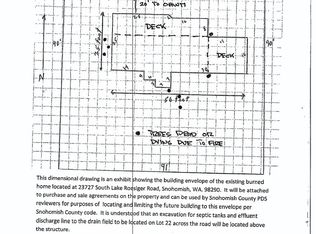 20' TO
DECK
DECK
90'
90'
N
56 FOOT
TREES DEAD OR
DYING DUE TO FIRE
91'
This dimensional drawing is an exhibit showing the building envelope of the existing burned
home located at 23727 South Lake Roesiger Road, Snohomish, WA. 98290. It will be attached
to purchase and sale agreements on the property and can be used by Snohomish County PDS
reviewers for purposes of locating and limiting the future building to this envelope per
Snohomish County code. It is understood that an excavation for septic tanks and effluent
discharge line to the drain field to be located on Lot 22 across the road will be located above
the structure.